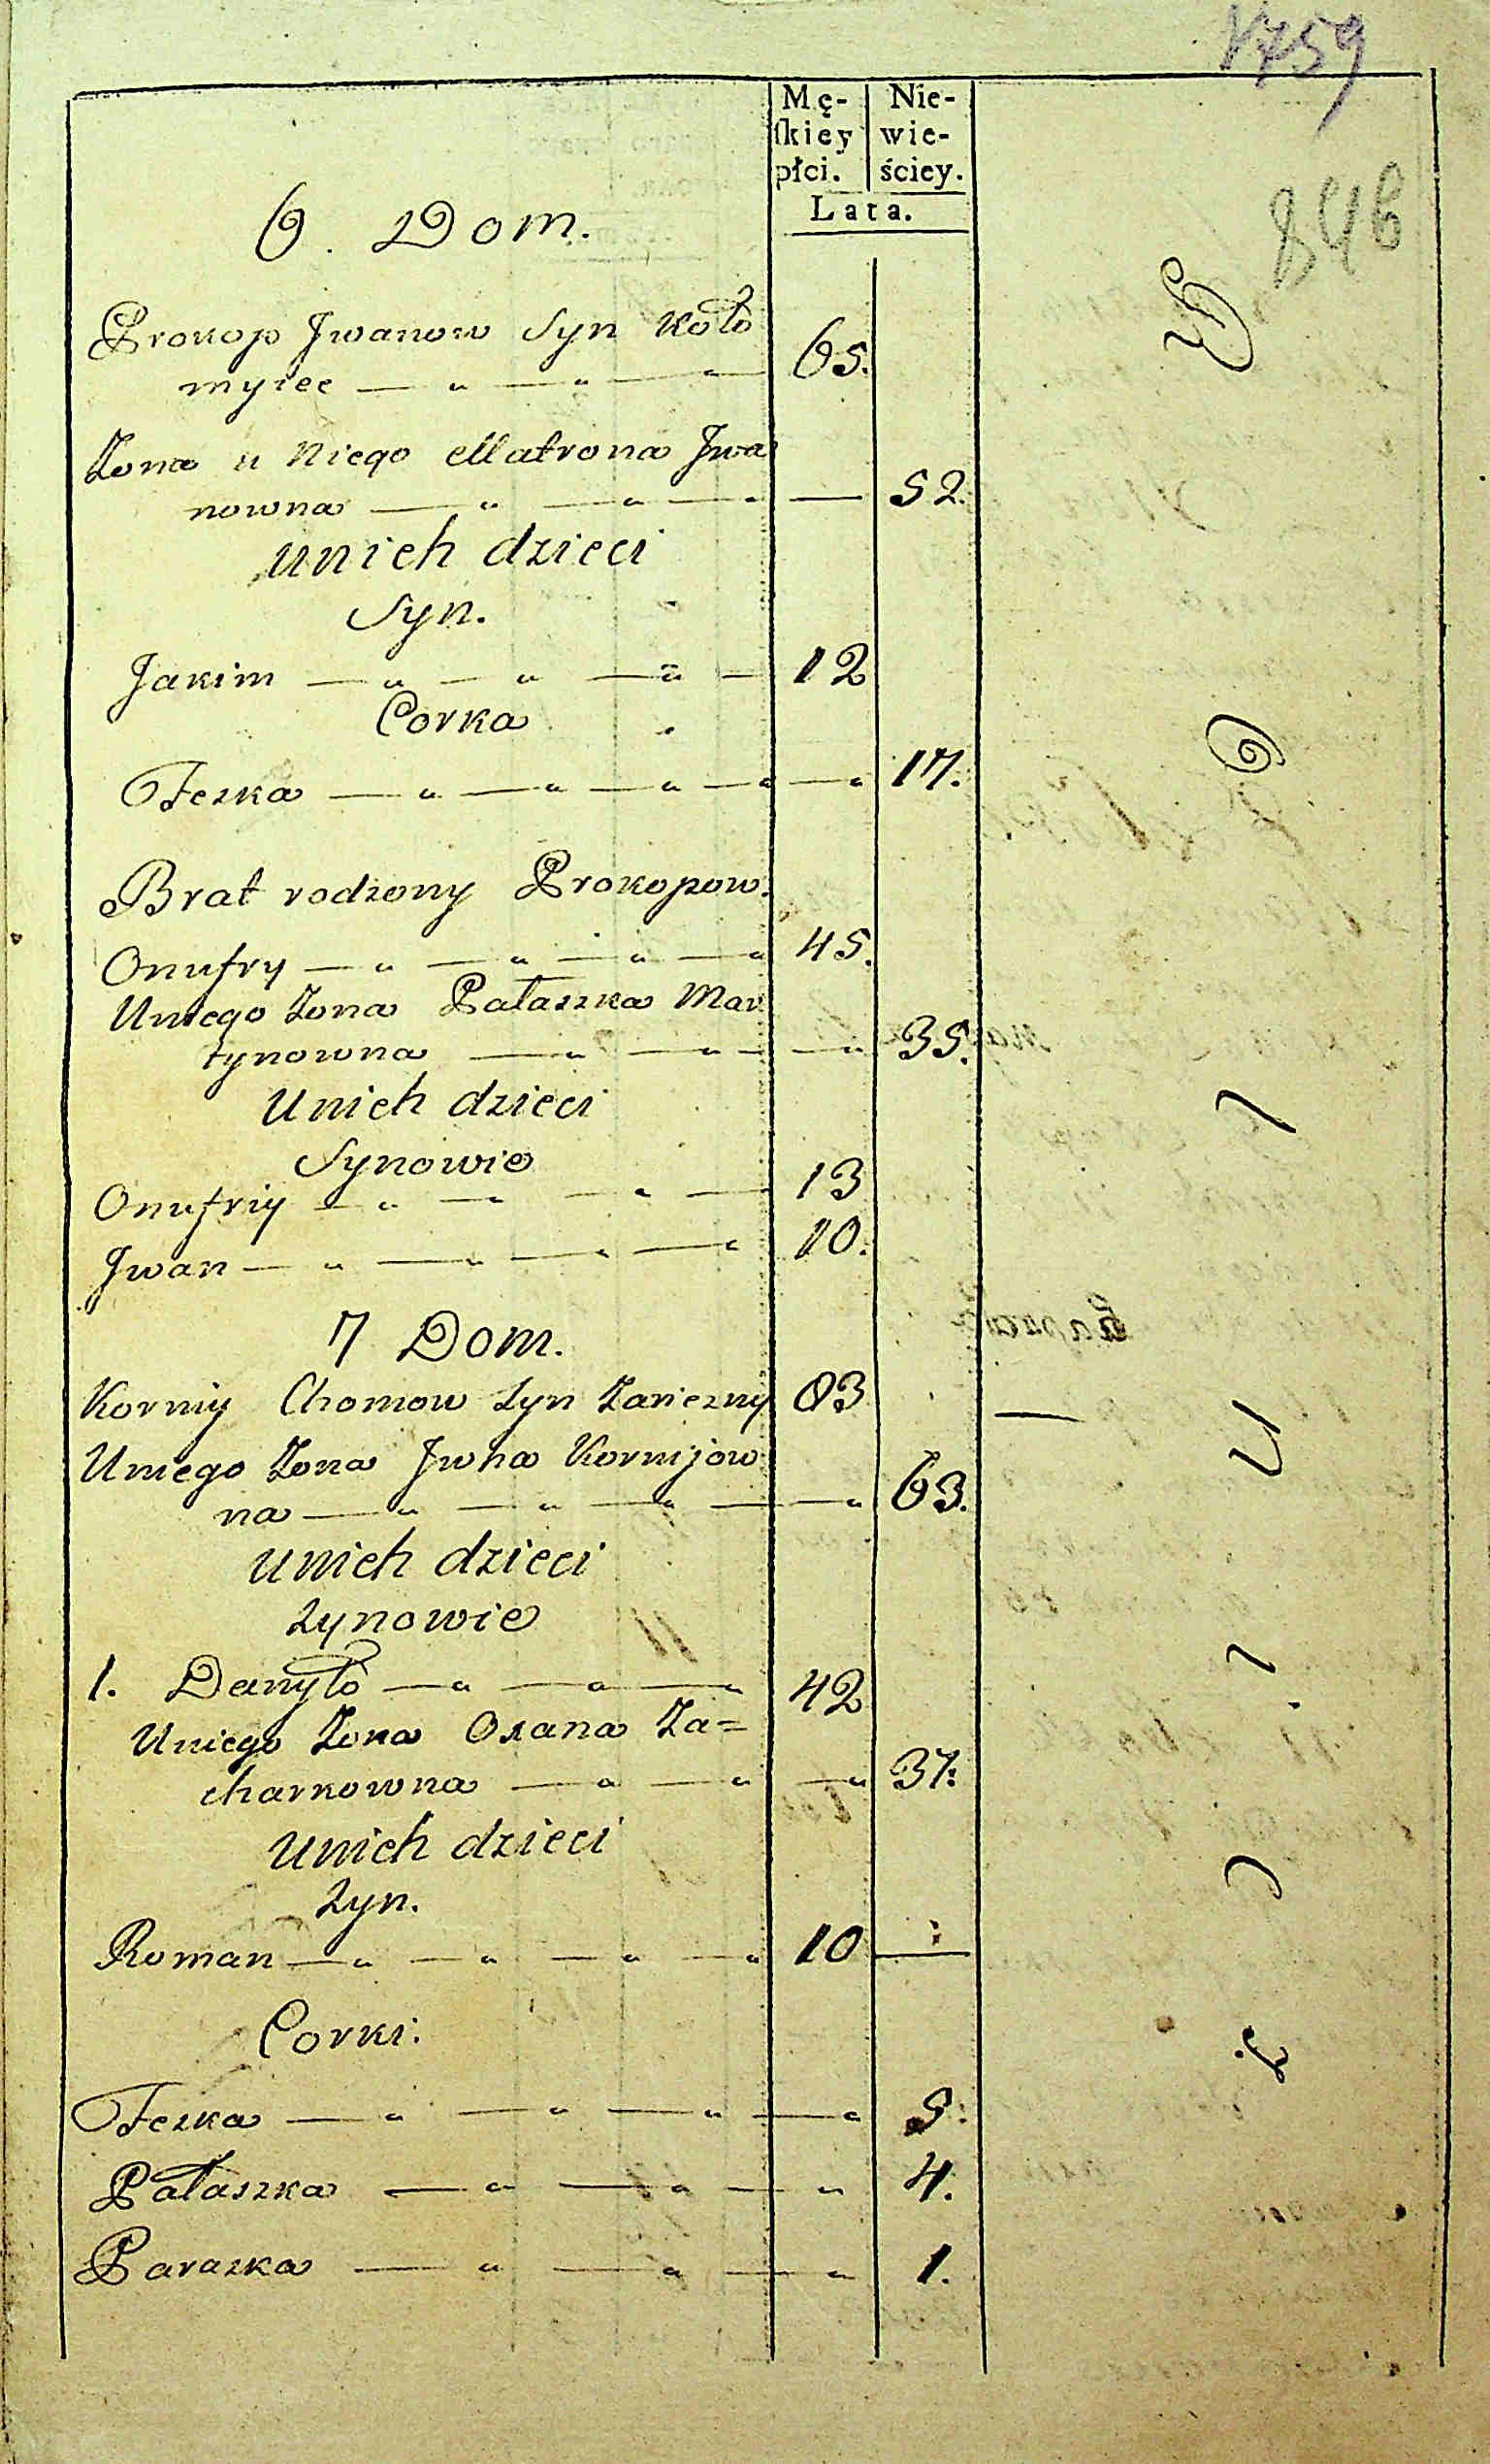 1759
846
Mę-
skiey
płci.
Nie-
wie-
ściey.
Lata.
6. Dom.
Prokop Jwanow Syn Koło
myiec — " — " — 65.
Zona u Niego Matrona Jwa
nowna — " — " — — 52.
unich dzieci
Syn.
Jakim — " — " — " — 12
Corka
Feska — " — " — " — " — " 17.
Brat rodzony Prokopow.
Onufry — " — " — " — " 45.
Uniego Zona Pałaszka Mar
tynowna — " — " — — " 35.
Unich dzieci
Synowie
Onufriy — " — " — " — 13
Jwan — " — " — " — " 10.
7 Dom.
Korniy Chomow Syn 83 —
Uniego Zona Jwha Kornijow
na — " — " — " — — " 63.
unich dzieci
Synowie
1. Danyło — " — " — 42
Uniego Zona Oxana Za=
charkowna — " — " — " 37:
Unich dzieci
Syn.
Roman — " — " — " — " 10 —
Corki:
Feska — " — " — " — " 9:
Pałaszka — " — " — " 4.
Paraska — " — " — " 1.